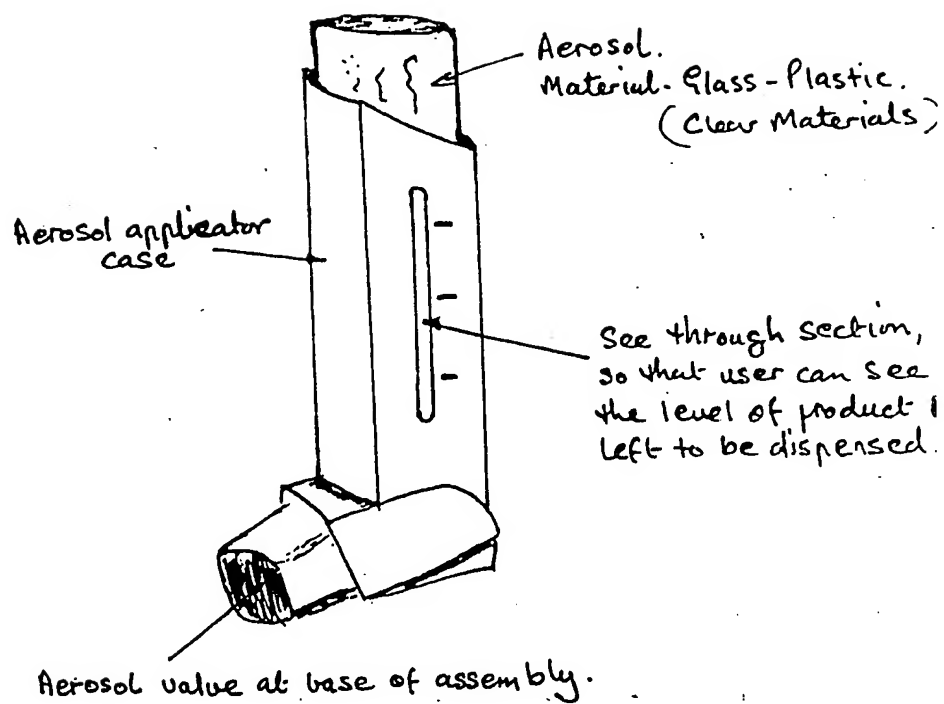 Aerosol.
Material - Glass - Plastic.
(Clear Materials)
Aerosol applicator
case
See through section,
so that user can see
the level of product
left to be dispensed.
Aerosol valve at base of assembly.